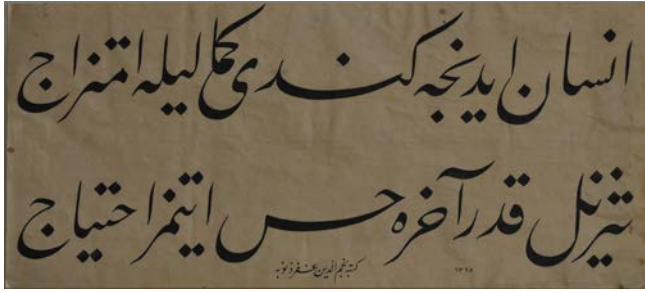 انسان ایدنجه كندی كمالیله امتزاج
تیز نل قدر آخره حس ایتمز احتیاج
كتبه نجم الدین غفر ذنوبه